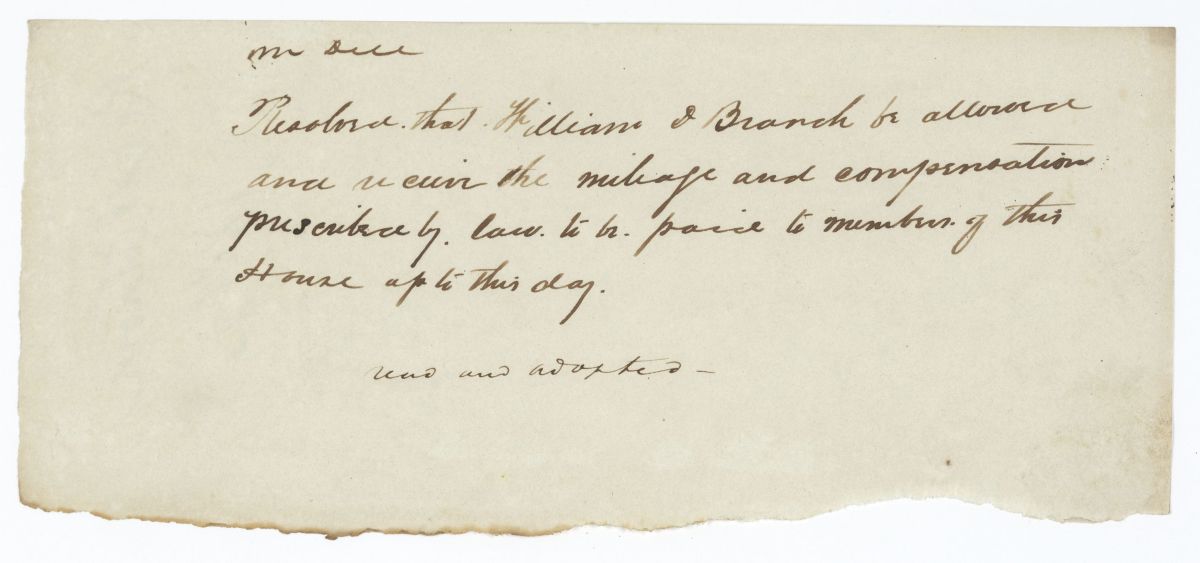 Mr Dell
Resolved. that. William D Branch be allowed
and receive the mileage and compensation
prescribed by. law. to be. paid to members. of this
House up to this day.
read and adopted –